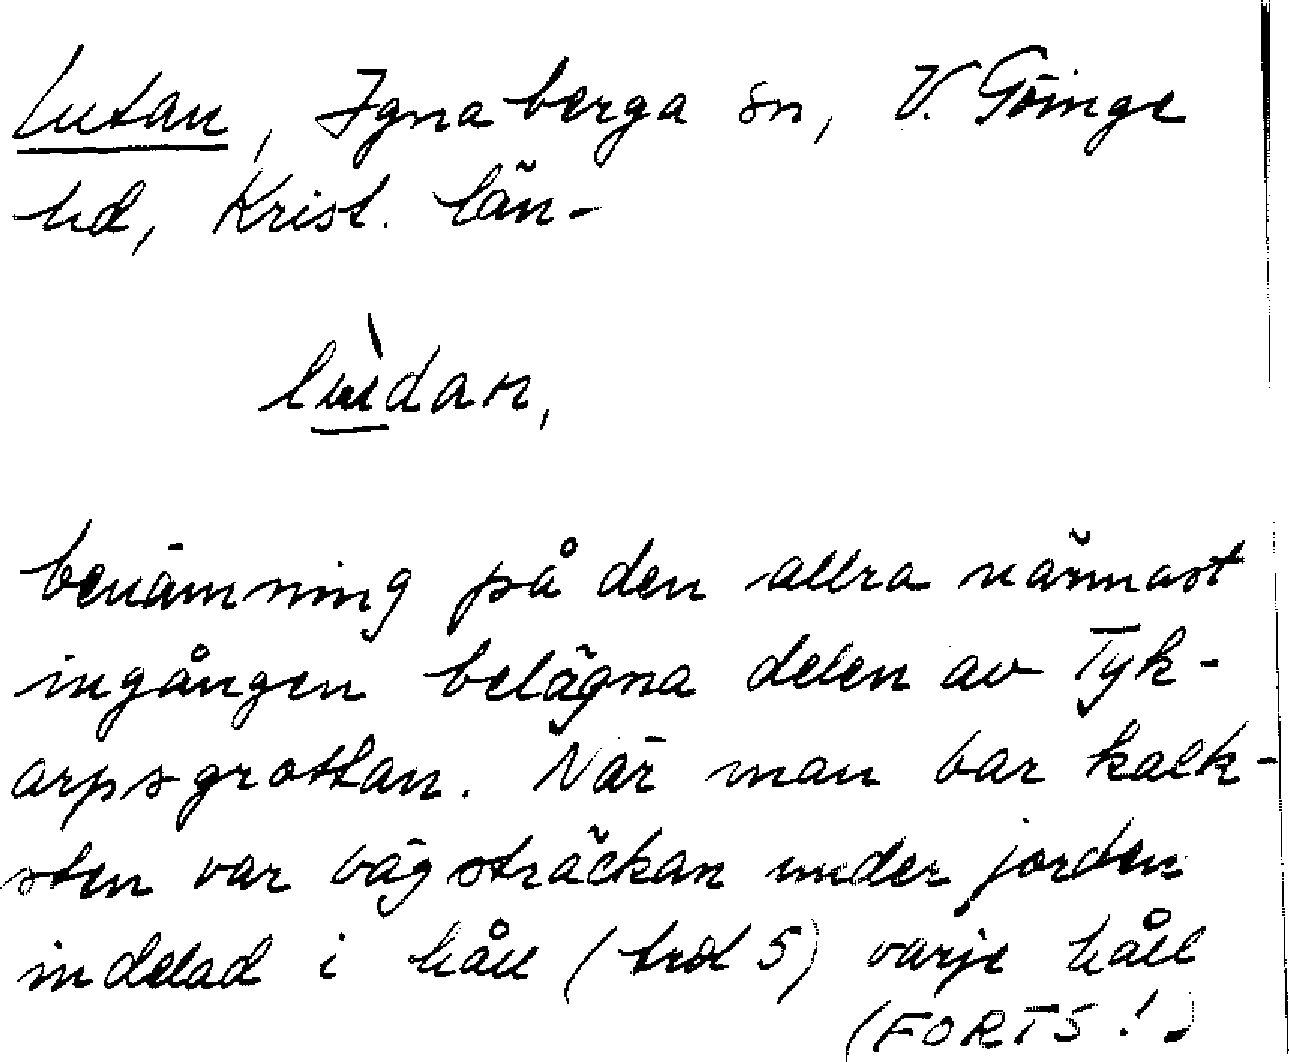 Lutan, Ignaberga sn, V. Göinge
hd, Krist. län-
lùdan,
benämning på den allra närmast
ingången belägna delen av Tyk-
arpsgrottan. När man bar kalk-
sten var vägsträckan under jorden
indelad i håll (trol 5) varje håll
(FORTS!)